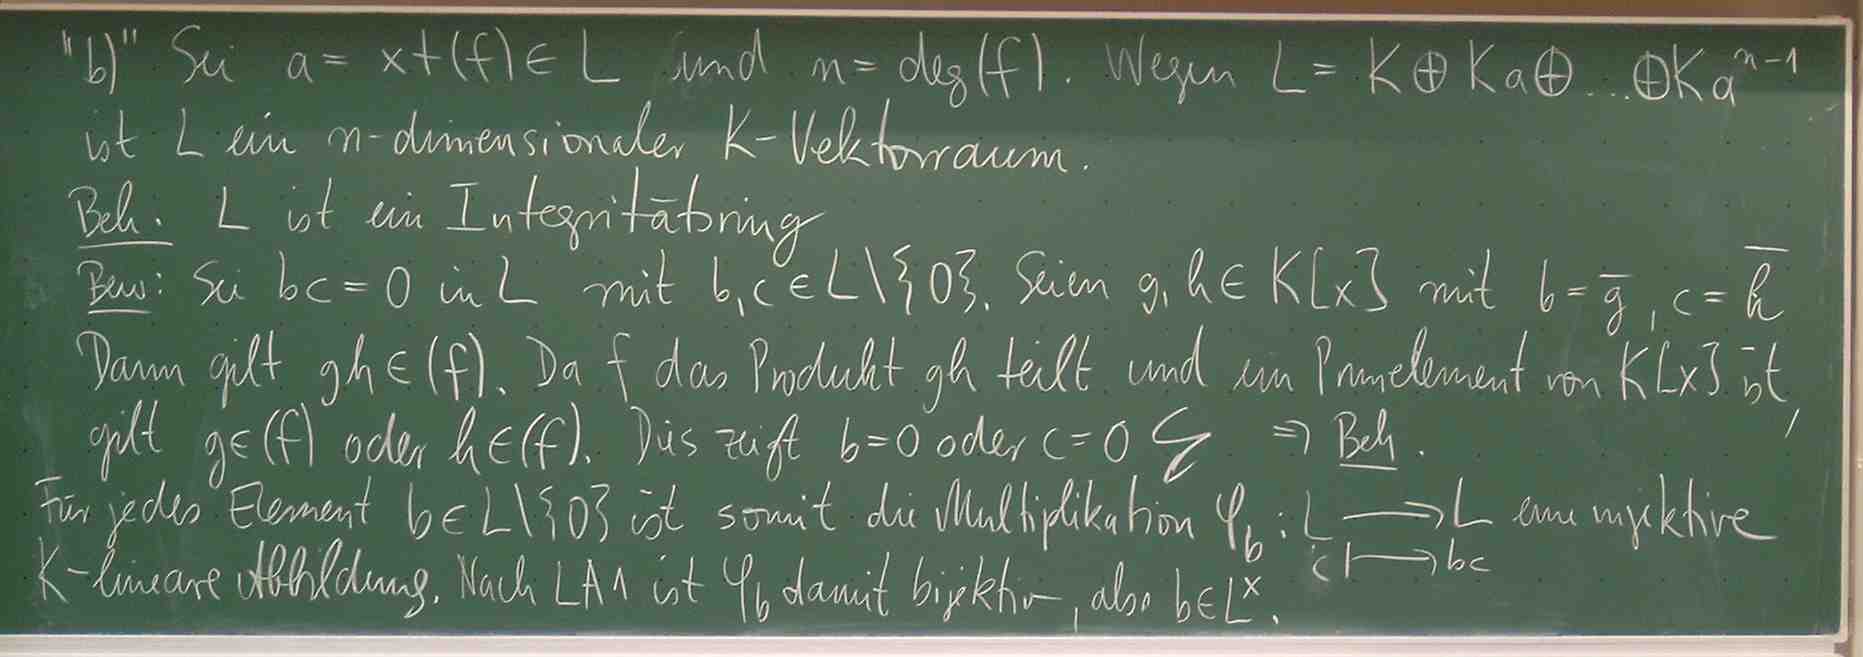 "b)" Sei a = x+(f) ∈ L und n = deg(f). Wegen L = K ⊕ Ka ⊕ ... ⊕ Ka^{n-1}
ist L ein n-dimensionaler K-Vektorraum.
Beh. L ist ein Integritätsring
Bew: Sei bc = 0 in L mit b, c ∈ L\{0}. Seien g, h ∈ K[x] mit b = g̅, c = h̅
Dann gilt gh ∈ (f). Da f das Produkt gh teilt und ein Primelement von K[x] ist,
gilt g ∈ (f) oder h ∈ (f). Dies zeigt b=0 oder c=0 ↯ ⇒ Beh.
Für jedes Element b ∈ L\{0} ist somit die Multiplikation φ_b : L ⟶ L eine injektive
c ⟼ bc
K-lineare Abbildung. Nach LA1 ist φ_b damit bijektiv, also b ∈ L^×.